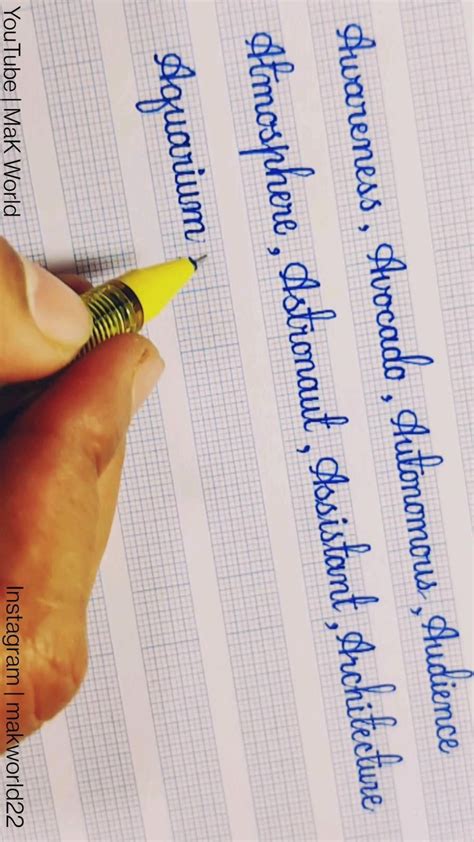 Awareness, Avocado, Autonomous, Audience
Atmosphere, Astronaut, Assistant, Architecture
Aquarium
YouTube | MaK World
Instagram | makworld22